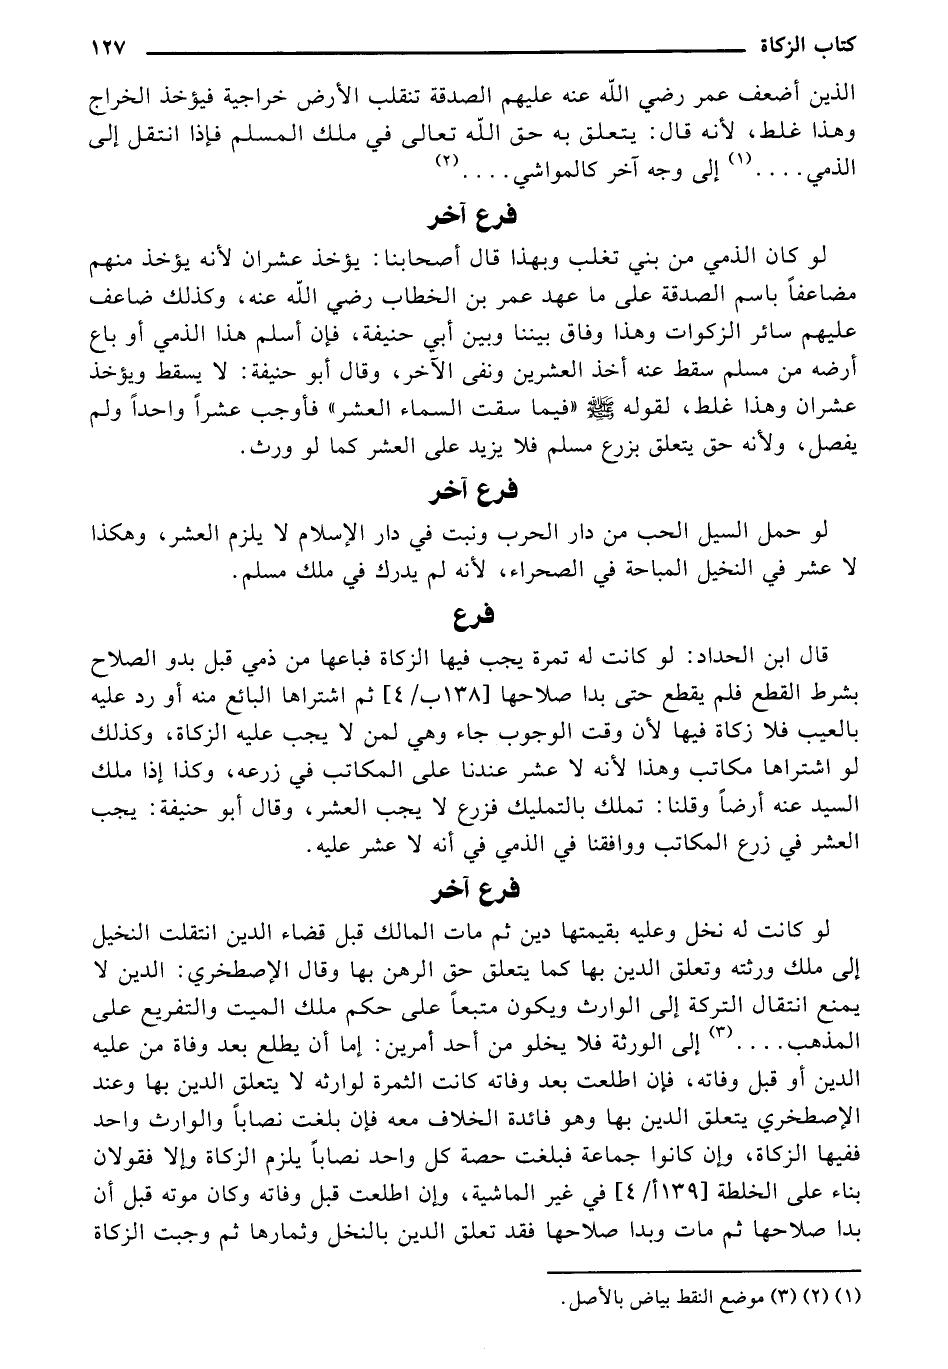 كتاب الزكاة ١٢٧
الذين أضعف عمر رضي الله عنه عليهم الصدقة تنقلب الأرض خراجية فيؤخذ الخراج
وهذا غلط، لأنه قال: يتعلق به حق الله تعالى في ملك المسلم فإذا انتقل إلى
الذمي....(١) إلى وجه آخر كالمواشي....(٢)
فرع آخر
لو كان الذمي من بني تغلب وبهذا قال أصحابنا: يؤخذ عشران لأنه يؤخذ منهم
مضاعفاً باسم الصدقة على ما عهد عمر بن الخطاب رضي الله عنه، وكذلك ضاعف
عليهم سائر الزكوات وهذا وفاق بيننا وبين أبي حنيفة، فإن أسلم هذا الذمي أو باع
أرضه من مسلم سقط عنه أخذ العشرين ونفى الآخر، وقال أبو حنيفة: لا يسقط ويؤخذ
عشران وهذا غلط، لقوله ﷺ «فيما سقت السماء العشر» فأوجب عشراً واحداً ولم
يفصل، ولأنه حق يتعلق بزرع مسلم فلا يزيد على العشر كما لو ورث.
فرع آخر
لو حمل السيل الحب من دار الحرب ونبت في دار الإسلام لا يلزم العشر، وهكذا
لا عشر في النخيل المباحة في الصحراء، لأنه لم يدرك في ملك مسلم.
فرع
قال ابن الحداد: لو كانت له تمرة يجب فيها الزكاة فباعها من ذمي قبل بدو الصلاح
بشرط القطع فلم يقطع حتى بدا صلاحها [١٣٨ب/ ٤] ثم اشتراها البائع منه أو رد عليه
بالعيب فلا زكاة فيها لأن وقت الوجوب جاء وهي لمن لا يجب عليه الزكاة، وكذلك
لو اشتراها مكاتب وهذا لأنه لا عشر عندنا على المكاتب في زرعه، وكذا إذا ملك
السيد عنه أرضاً وقلنا: تملك بالتمليك فزرع لا يجب العشر، وقال أبو حنيفة: يجب
العشر في زرع المكاتب ووافقنا في الذمي في أنه لا عشر عليه.
فرع آخر
لو كانت له نخل وعليه بقيمتها دين ثم مات المالك قبل قضاء الدين انتقلت النخيل
إلى ملك ورثته وتعلق الدين بها كما يتعلق حق الرهن بها وقال الإصطخري: الدين لا
يمنع انتقال التركة إلى الوارث ويكون متبعاً على حكم ملك الميت والتفريع على
المذهب....(٣) إلى الورثة فلا يخلو من أحد أمرين: إما أن يطلع بعد وفاة من عليه
الدين أو قبل وفاته، فإن اطلعت بعد وفاته كانت الثمرة لوارثه لا يتعلق الدين بها وعند
الإصطخري يتعلق الدين بها وهو فائدة الخلاف معه فإن بلغت نصاباً والوارث واحد
ففيها الزكاة، وإن كانوا جماعة فبلغت حصة كل واحد نصاباً يلزم الزكاة وإلا فقولان
بناء على الخلطة [١٣٩أ/ ٤] في غير الماشية، وإن اطلعت قبل وفاته وكان موته قبل أن
بدا صلاحها ثم مات وبدا صلاحها فقد تعلق الدين بالنخل وثمارها ثم وجبت الزكاة
(١) (٢) (٣) موضع النقط بياض بالأصل.